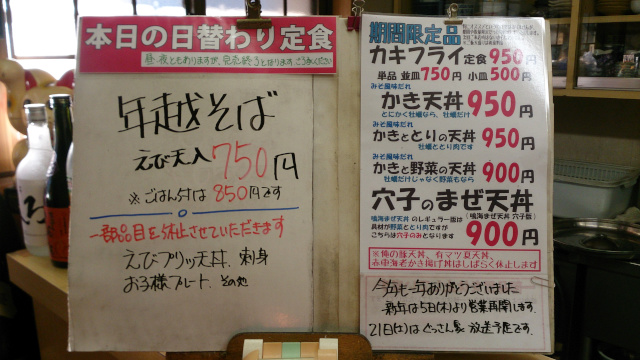 本日の日替わり定食
昼、夜ともありますが、完売終了となります。ごう承ください
年越そば
えび天入 750円
※ごはん付は850円です
一部品目を休止させていただきます
えびプリッ天丼、刺身
お子様プレート、その他
期間限定品
カキフライ定食950円
単品 並皿750円 小皿500円
みそ風味だれ
かき天丼950円
とにかく牡蠣なら、牡蠣だけ
みそ風味だれ
かきととりの天丼 950円
牡蠣ととり肉です
みそ風味だれ
かきと野菜の天丼 900円
牡蠣だけじゃなく野菜もなら
穴子のまぜ天丼
鳴海まぜ天丼 のレギュラー版は
具材が野菜ととり肉ですが
こちらは穴子のみとなります
(鳴海まぜ天丼 穴子版)
900円
※俺の豚天丼、有マツ夏天丼、
赤車海老かき揚げ丼はしばらく休止します
今年も一年ありがとうございました
新年は5日(木)より営業再開します。
21日(土)はぐっさん家 放送予定です.